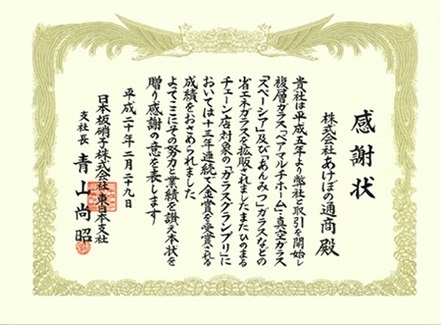 感謝状
株式会社あけぼの通商殿
貴社は平成五年より弊社と取引を開始し
複層ガラス「ペアマルチホーム」・真空ガラス
「スペーシア」及び「あんみつ」ガラスなどの
省エネガラスを拡販されましたまたひのまる
チェーン店対象の「ガラスグランプリ」に
おいては十三年連続で金賞を受賞され
成績をおさめられました
よってここにその努力と業績を讃え本状を
贈り感謝の意を表します
平成二十年二月二十九日
日本板硝子株式会社東日本支社
支社長 青山尚昭